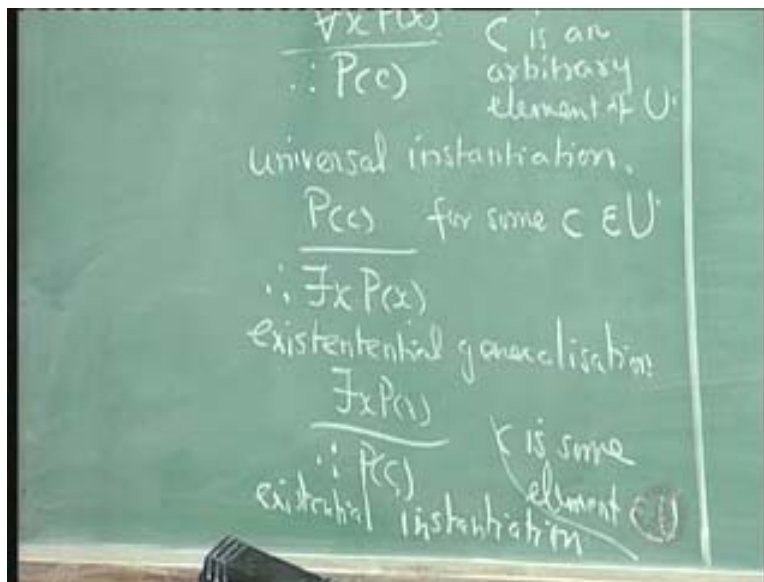 ∀x P(x) C is an
∴ P(c) arbitrary
element of U
universal instantiation.
P(c) for some C ∈ U
∴ ∃x P(x)
existentential generalisation
∃x P(x)
∴ P(c) c is some
element
existential instantiation